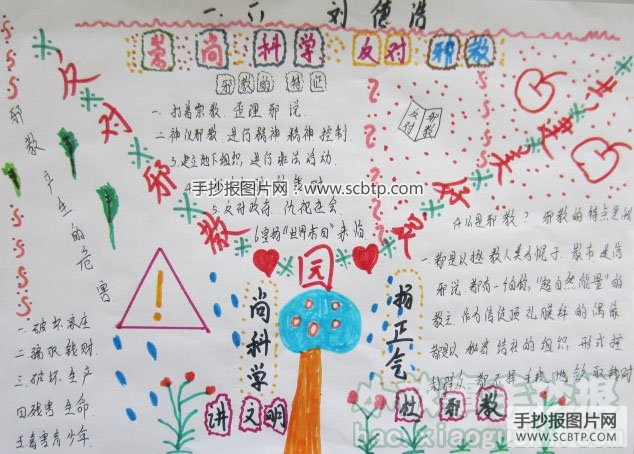 一.二 刘德浩
崇尚科学 反对邪教
邪教的特征
一.打着宗教 歪理邪说.
二.神化邪教 进行精神 精神 控制.
3.建立地下组织,进行非法活动.
手抄报图片网 www.scbtp.com
5.反对政府. 仇视社会
6.宣扬"世界末日"来临
反对邪教
反对
邪教
园
邪教产生的危害.
一.破坏家庭
二.骗取钱财.
三.破坏生产
四.残害生命.
五.毒害青少年.
尚科学
讲文明
扬正气
拒邪教
什么是邪教? 邪教的特点是
一.都是以拯救人类为幌子.散布迷信
邪说.都有一自称"超自然能量"的
教主.作为信徒顶礼膜拜的偶像
都是以秘密结社的组织形式控
手抄报图片网
WWW.SCBTP.COM